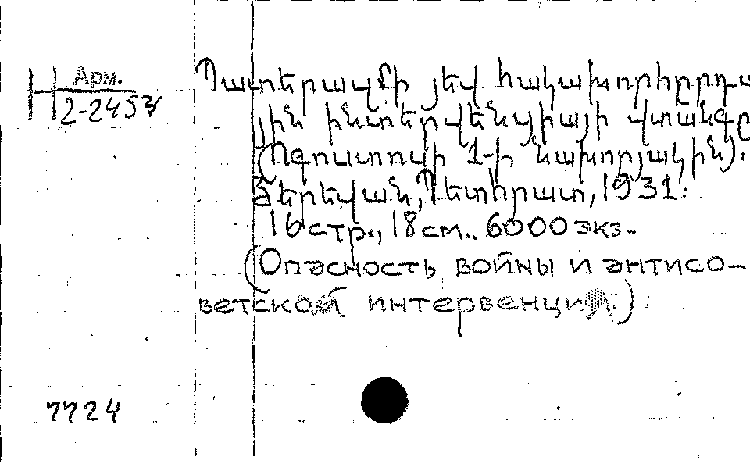 Арм.
H 2-2453
Պատերազմի յեվ հակախորհրդա
յին ինտերվենցիայի վտանգը
(Ոգոստոսի 1-ի նախորյակին).
Յերեվան, Պետհրատ, 1931:
16 стр., 18 см.. 6000 экз.
(Опасность войны и антисо-
ветской интервенции.)
7724